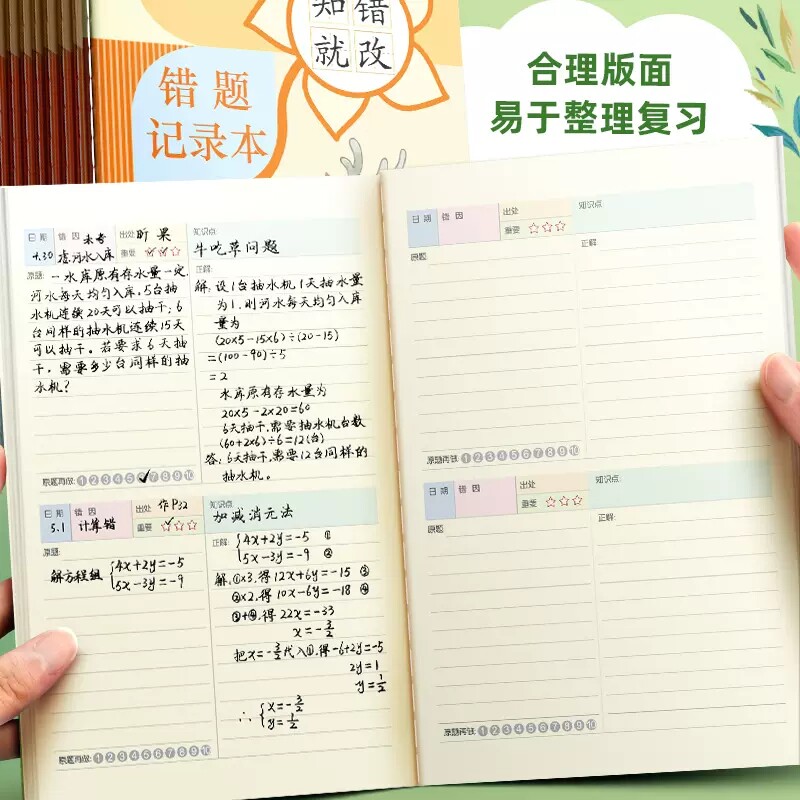 知错
就改
错题
记录本
合理版面
易于整理复习
日期 错因 未考 出处 昕果 知识点:
4.30 虑河水入库 重要 ☆☆☆ 牛吃草问题
原题: 一水库原有存水量一定,
河水每天均匀入库,5台抽
水机连续20天可以抽干;6
台同样的抽水机连续15天
可以抽干。若要求6天抽
干,需要多少台同样的抽
水机?
正解:
解:设1台抽水机1天抽水量
为1,则河水每天均匀入库
量为
(20×5-15×6)÷(20-15)
=(100-90)÷5
=2
水库原有存水量为
20×5-2×20=60
6天抽干,需要抽水机台数
(60+2×6)÷6=12(台)
答:6天抽干,需要12台同样的
抽水机。
原题再做: 1 2 3 4 5 6 7 8 9 10
日期 错因 出处 作P32 知识点:
5.1 计算错 重要 ☆☆☆ 加减消元法
原题:
解方程组 {4x+2y=-5
5x-3y=-9
正解: {4x+2y=-5 ①
5x-3y=-9 ②
解:①×3,得12x+6y=-15 ③
②×2,得10x-6y=-18 ④
③+④,得22x=-33
x=-3/2
把x=-3/2代入①,得-6+2y=-5
2y=1
y=1/2
∴ {x=-3/2
y=1/2
原题再做: 1 2 3 4 5 6 7 8 9 10
日期 错因 出处 知识点:
重要 ☆☆☆
原题: 正解:
原题再做: 1 2 3 4 5 6 7 8 9 10
日期 错因 出处 知识点:
重要 ☆☆☆
原题: 正解:
原题再做: 1 2 3 4 5 6 7 8 9 10